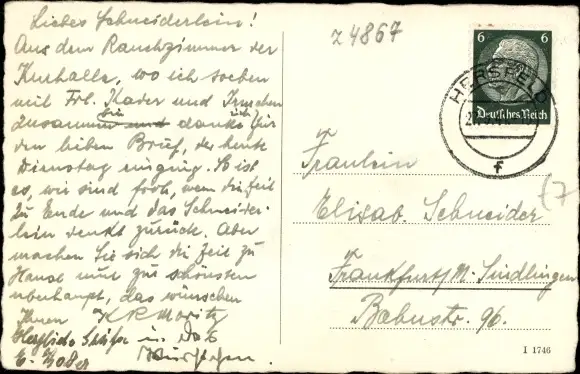 Liebes Schneiderlein!
Aus dem Rauchzimmer der
Kurhalle, wo ich soeben
mit Frl. Kader und
zusammen bin danke ich für
den lieben Brief, der heute
Dienstag einging. So ist
es, wir sind froh, wenn die Zeit
zu Ende und das Schneider-
lein denkt zurück. Aber
machen Sie sich die Zeit zu
Hause nur zur schönsten
überhaupt, das wünschen
Ihnen K.R. Moritz
Herzliche Grüße
z 4867
6 6
Deutsches Reich
HERSFELD
f
(7
Fräulein
Elisab. Schneider
Frankfurt/M. Sindlingen
Bahnstr. 96.
I 1746